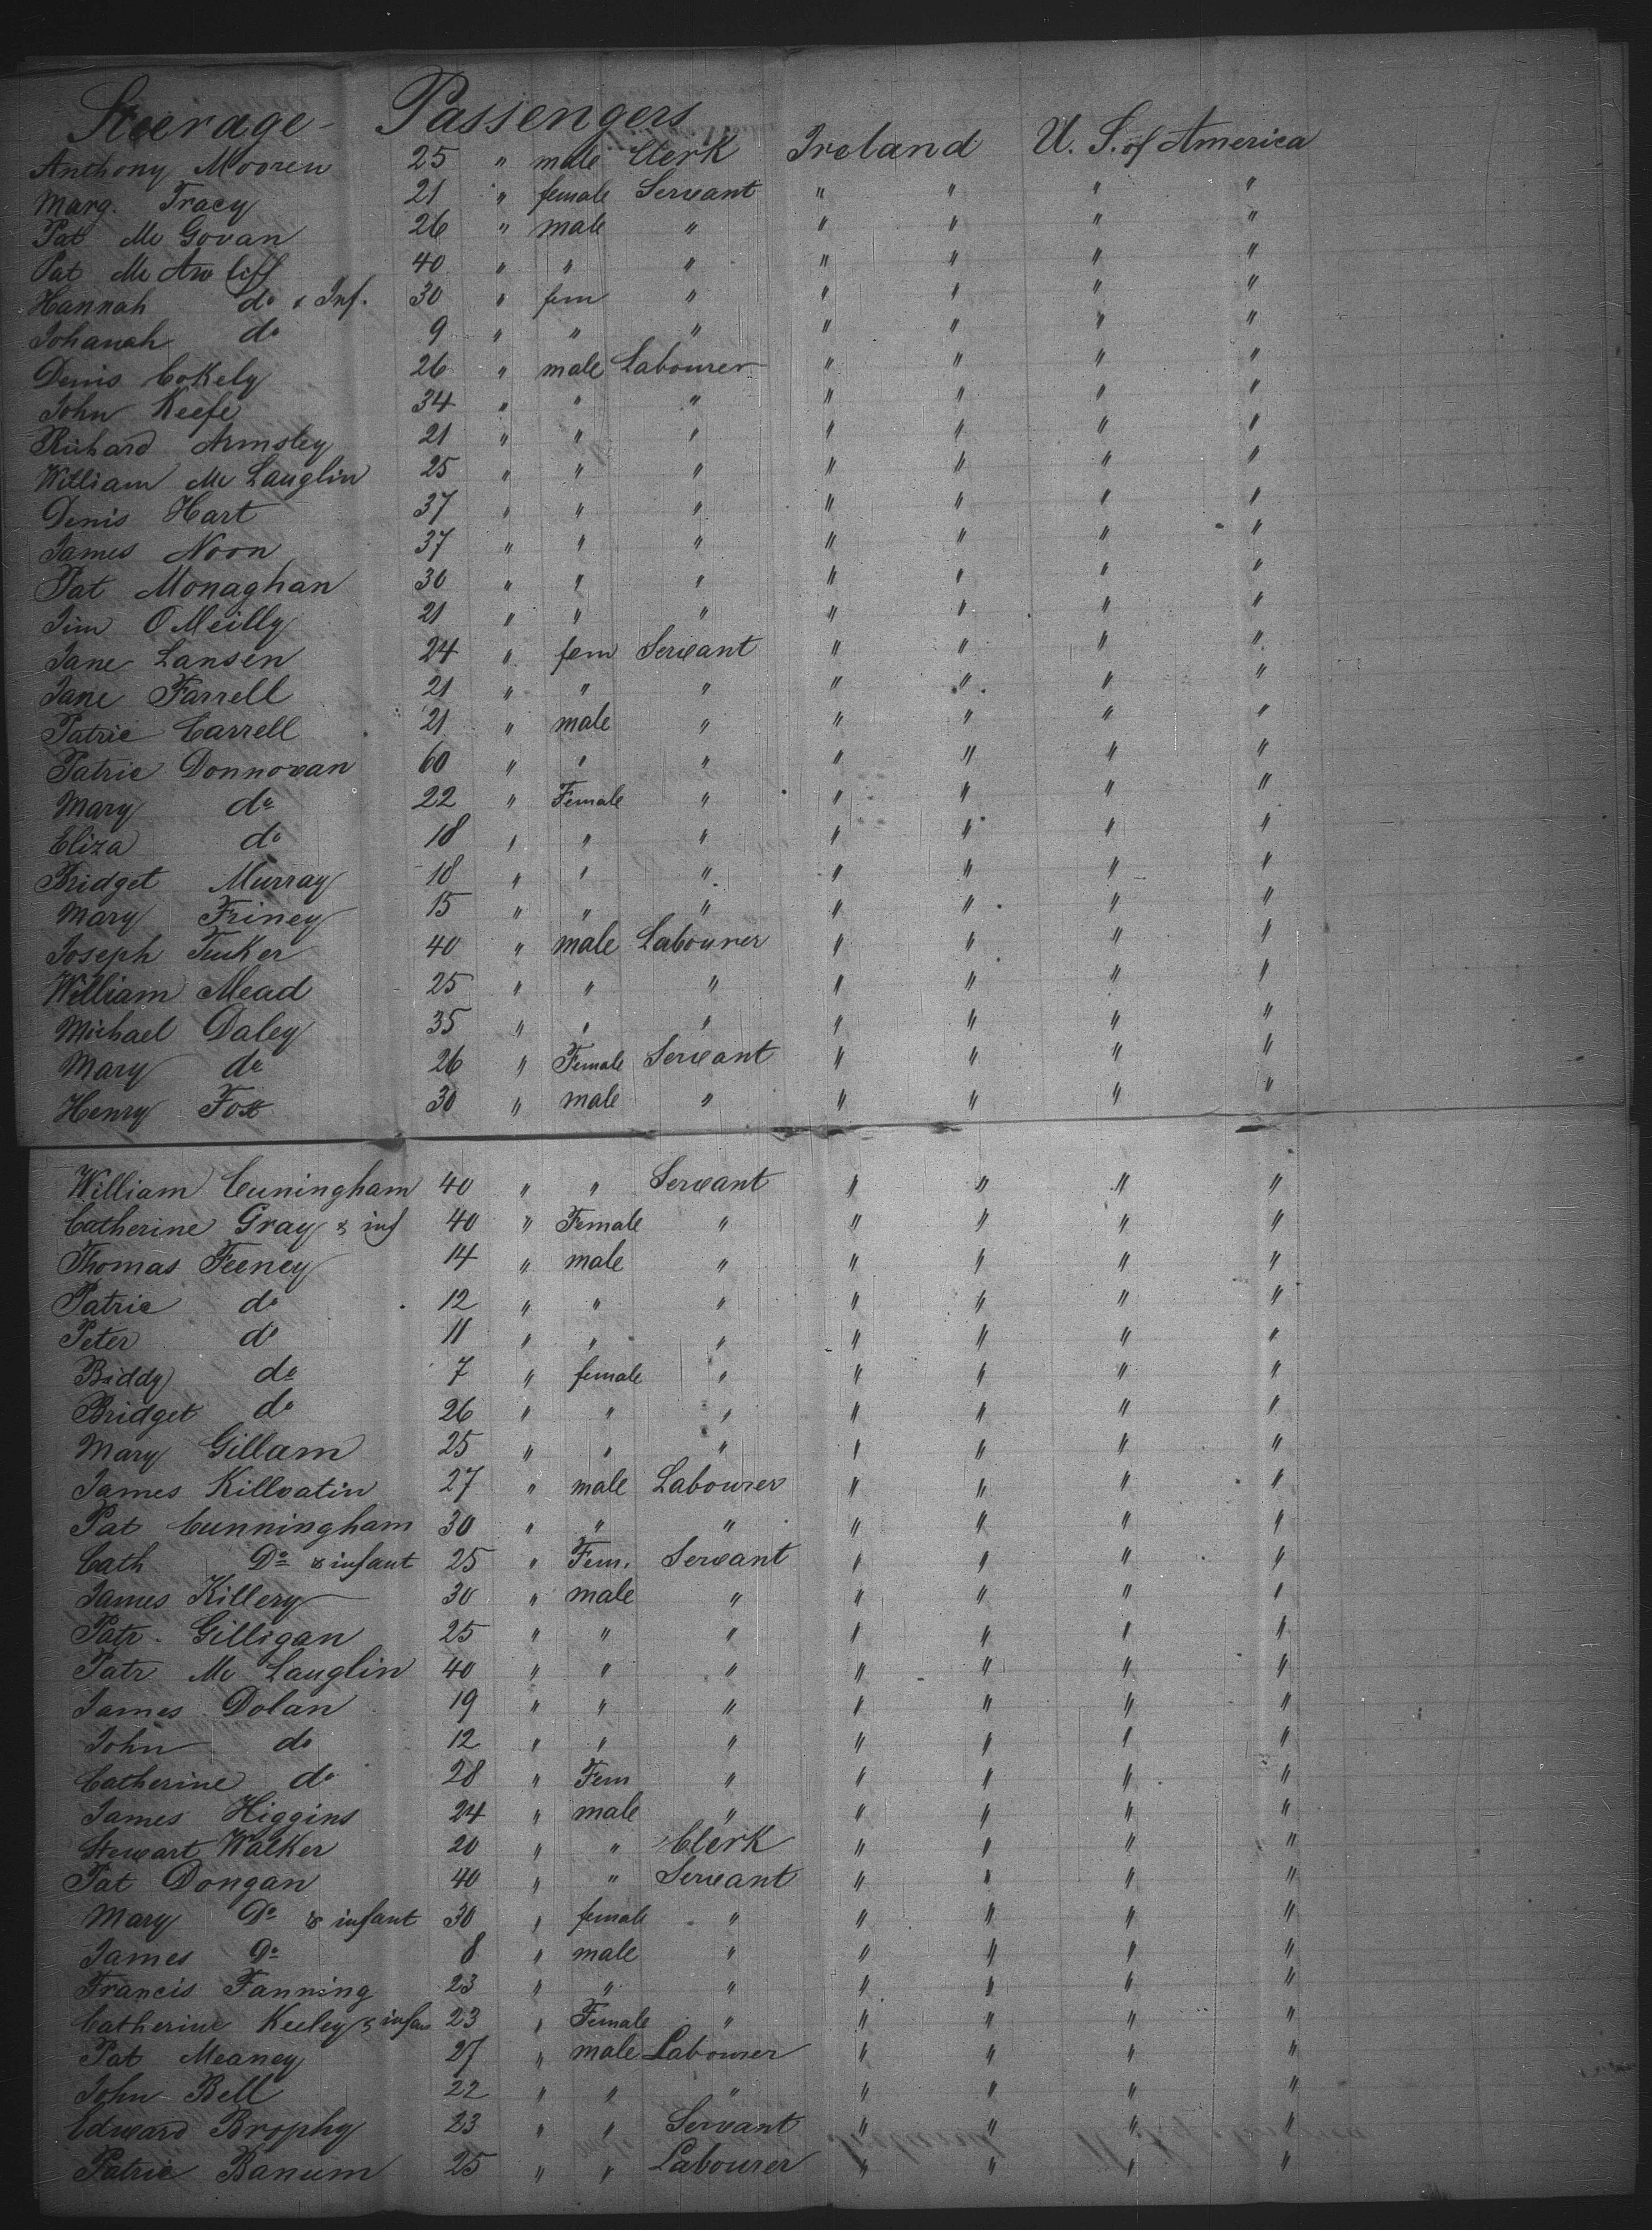 Steerage - Passengers
Anthony Mooren 25 " male Clerk Ireland U. S. of America
Marg. Tracy 21 " female Servant " " " "
Pat Mc Govan 26 " male " " " " "
Pat Mc Awliff 40 " " " " " " "
Hannah do & Inf. 30 " fem " " " " "
Johanah do 9 " " " " " " "
Denis Cokely 26 " male Labourer " " " "
John Keefe 34 " " " " " " "
Richard Armsley 21 " " " " " " "
William Mc Lauglin 25 " " " " " " "
Denis Hart 37 " " " " " " "
James Noon 37 " " " " " " "
Pat Monaghan 30 " " " " " " "
Jim O Meilly 21 " " " " " " "
Jane Lansen 24 " fem Servant " " " "
Jane Farrell 21 " " " " " " "
Patric Carrell 21 " male " " " " "
Patric Donnovan 60 " " " " " " "
Mary do 22 " Female " " " " "
Eliza do 18 " " " " " " "
Bridget Murray 18 " " " " " " "
Mary Friney 15 " " " " " " "
Joseph Tucker 40 " male Labourer " " " "
William Mead 25 " " " " " " "
Michael Daley 35 " " " " " " "
Mary do 26 " Female Servant " " " "
Henry Fox 30 " male " " " " "
William Cuningham 40 " " Servant " " " "
Catherine Gray & inf 40 " Female " " " " "
Thomas Feeney 14 " male " " " " "
Patric do 12 " " " " " " "
Peter do 11 " " " " " " "
Biddy do 7 " female " " " " "
Bridget do 26 " " " " " " "
Mary Gillam 25 " " " " " " "
James Killoatin 27 " male Labourer " " " "
Pat Cunningham 30 " " " " " " "
Cath Do & infant 25 " Fem. Servant " " " "
James Killery 30 " male " " " " "
Patr. Gilligan 25 " " " " " " "
Patr Mc Lauglin 40 " " " " " " "
James Dolan 19 " " " " " " "
John do 12 " " " " " " "
Catherine do 28 " Fem " " " " "
James Higgins 24 " male " " " " "
Stewart Walker 20 " " Clerk " " " "
Pat Dongan 40 " " Servant " " " "
Mary Do & infant 30 " female " " " " "
James Do 8 " male " " " " "
Francis Fanning 23 " " " " " " "
Catherine Keeley & infan 23 " Female " " " " "
Pat Meaney 27 " male Labourer " " " "
John Bell 22 " " " " " " "
Edward Brophy 23 " " Servant " " " "
Patric Banum 25 " " Labourer " " " "